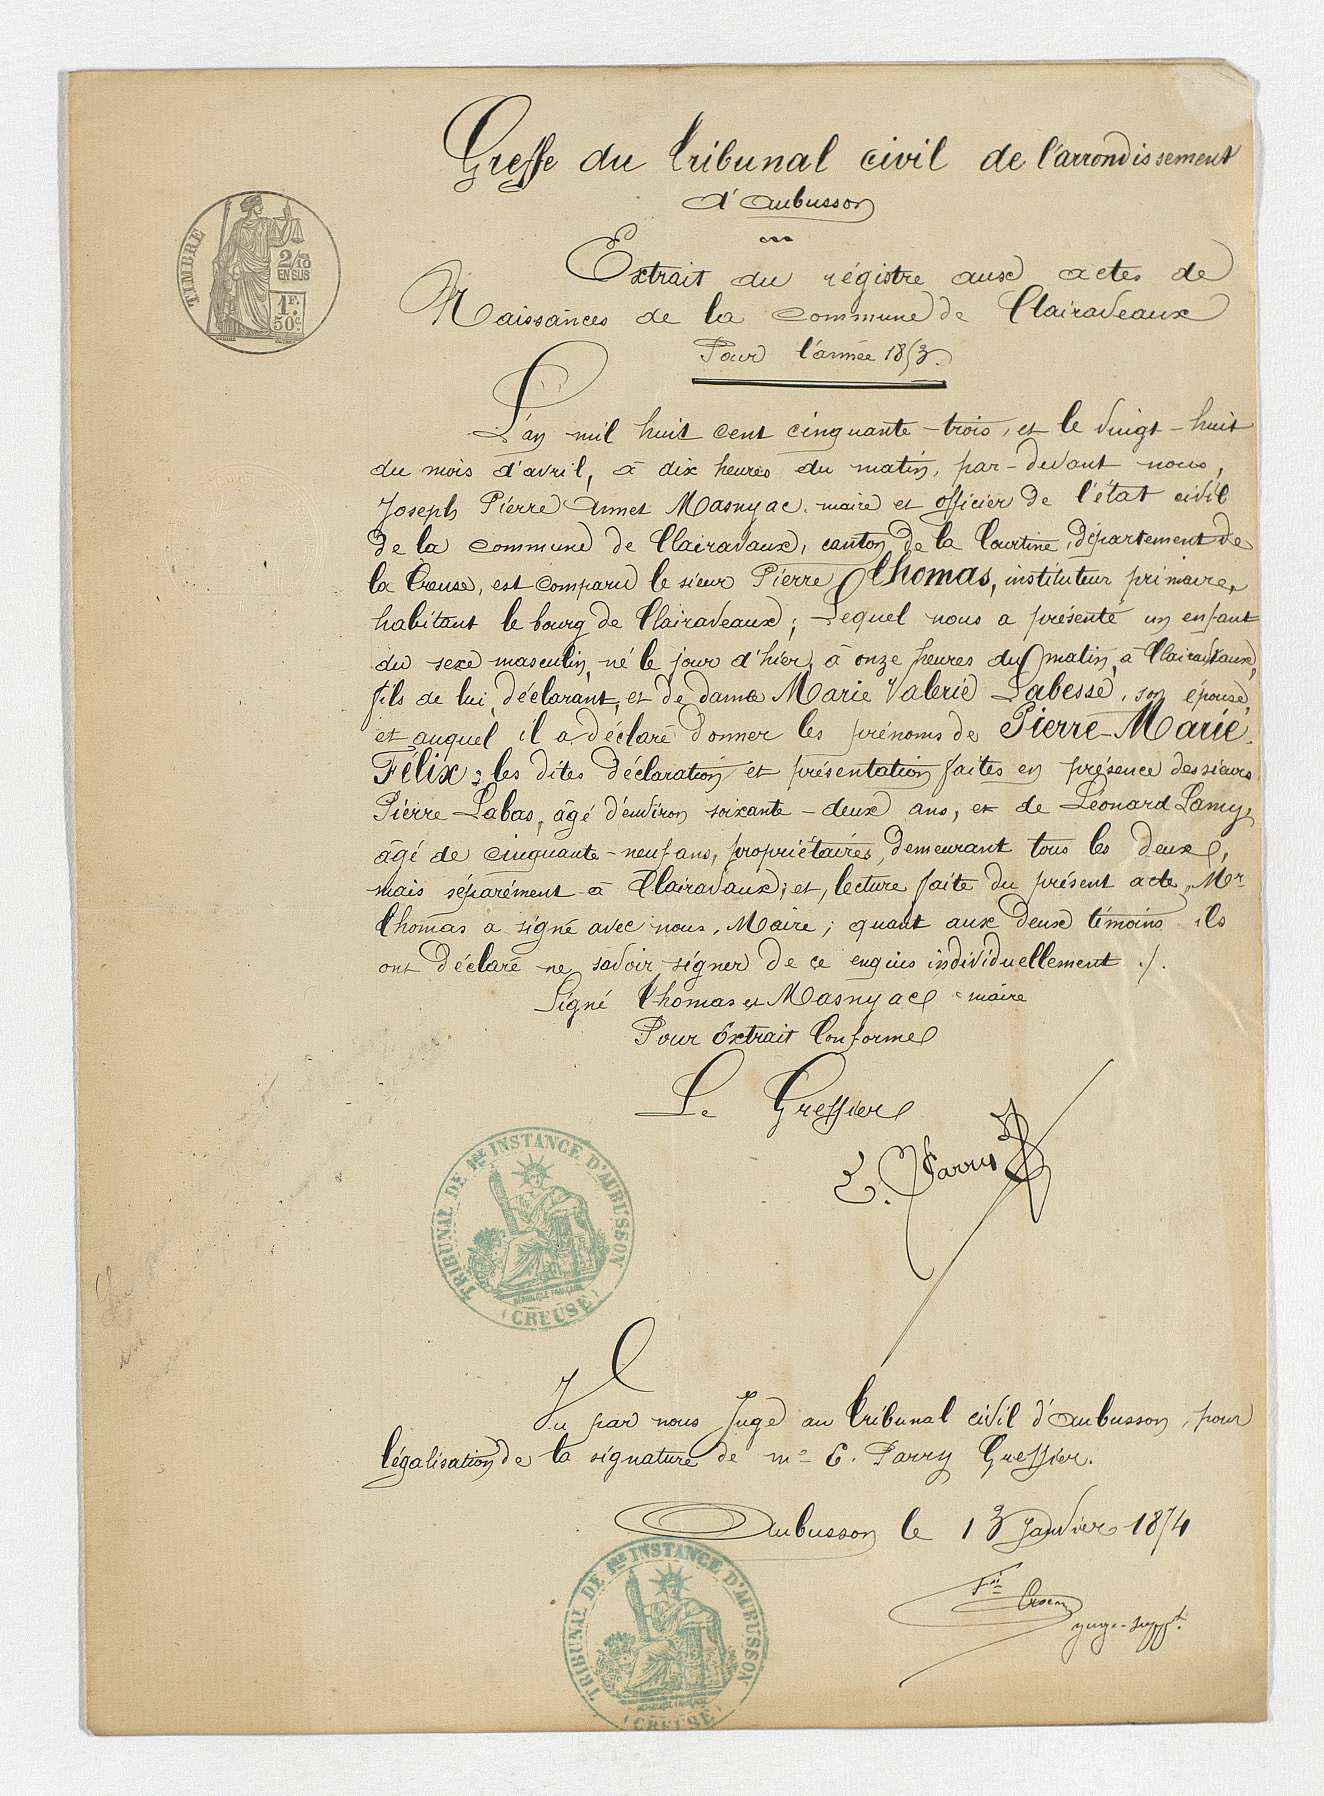 Greffe du Tribunal civil de l'arrondissement
d'Aubusson
TIMBRE
2/10
EN SUS
1F.
50c.
Extrait du régistre aux actes de
Naissances de la commune de Clairaveaux
Pour l'année 1853.
L'an mil huit cent cinquante-trois, et le vingt-huit
du mois d'avril, à dix heures du matin, par-devant nous,
Joseph Pierre Annet Masnyac, maire et officier de l'état civil
de la commune de Clairavaux, canton de la Courtine, département de
la Creuse, est comparu le sieur Pierre Thomas, instituteur primaire,
habitant le bourg de Clairaveaux; Lequel nous a présenté un enfant
du sexe masculin, né le jour d'hier, à onze heures du matin, à Clairavaux,
fils de lui, déclarant, et de dame Marie Valerie Labesse, son épouse,
et auquel il a déclaré donner les prénoms de Pierre-Marie-
Félix; les dites déclaration et présentation faites en présence des sieurs
Pierre Labas, âgé d'environ soixante-deux ans, et de Léonard Lamy,
âgé de cinquante-neuf ans, propriétaires, demeurant tous les deux,
mais séparément à Clairavaux; et, lecture faite du présent acte, Mr
Thomas a signé avec nous, Maire; quant aux deux témoins ils
ont déclaré ne savoir signer de ce enquis individuellement ./.
Signé Thomas et Masnyac maire
Pour Extrait Conforme
Le Greffier
E. Parry
TRIBUNAL DE 1RE INSTANCE D'AUBUSSON
RÉPUBLIQUE FRANÇAISE
(CREUSE)
Vu par nous Juge au Tribunal civil d'Aubusson, pour
légalisation de la signature de me E. Parry Greffier.
Aubusson le 13 Janvier 1874
juge-suppt.
TRIBUNAL DE 1RE INSTANCE D'AUBUSSON
RÉPUBLIQUE FRANÇAISE
(CREUSE)